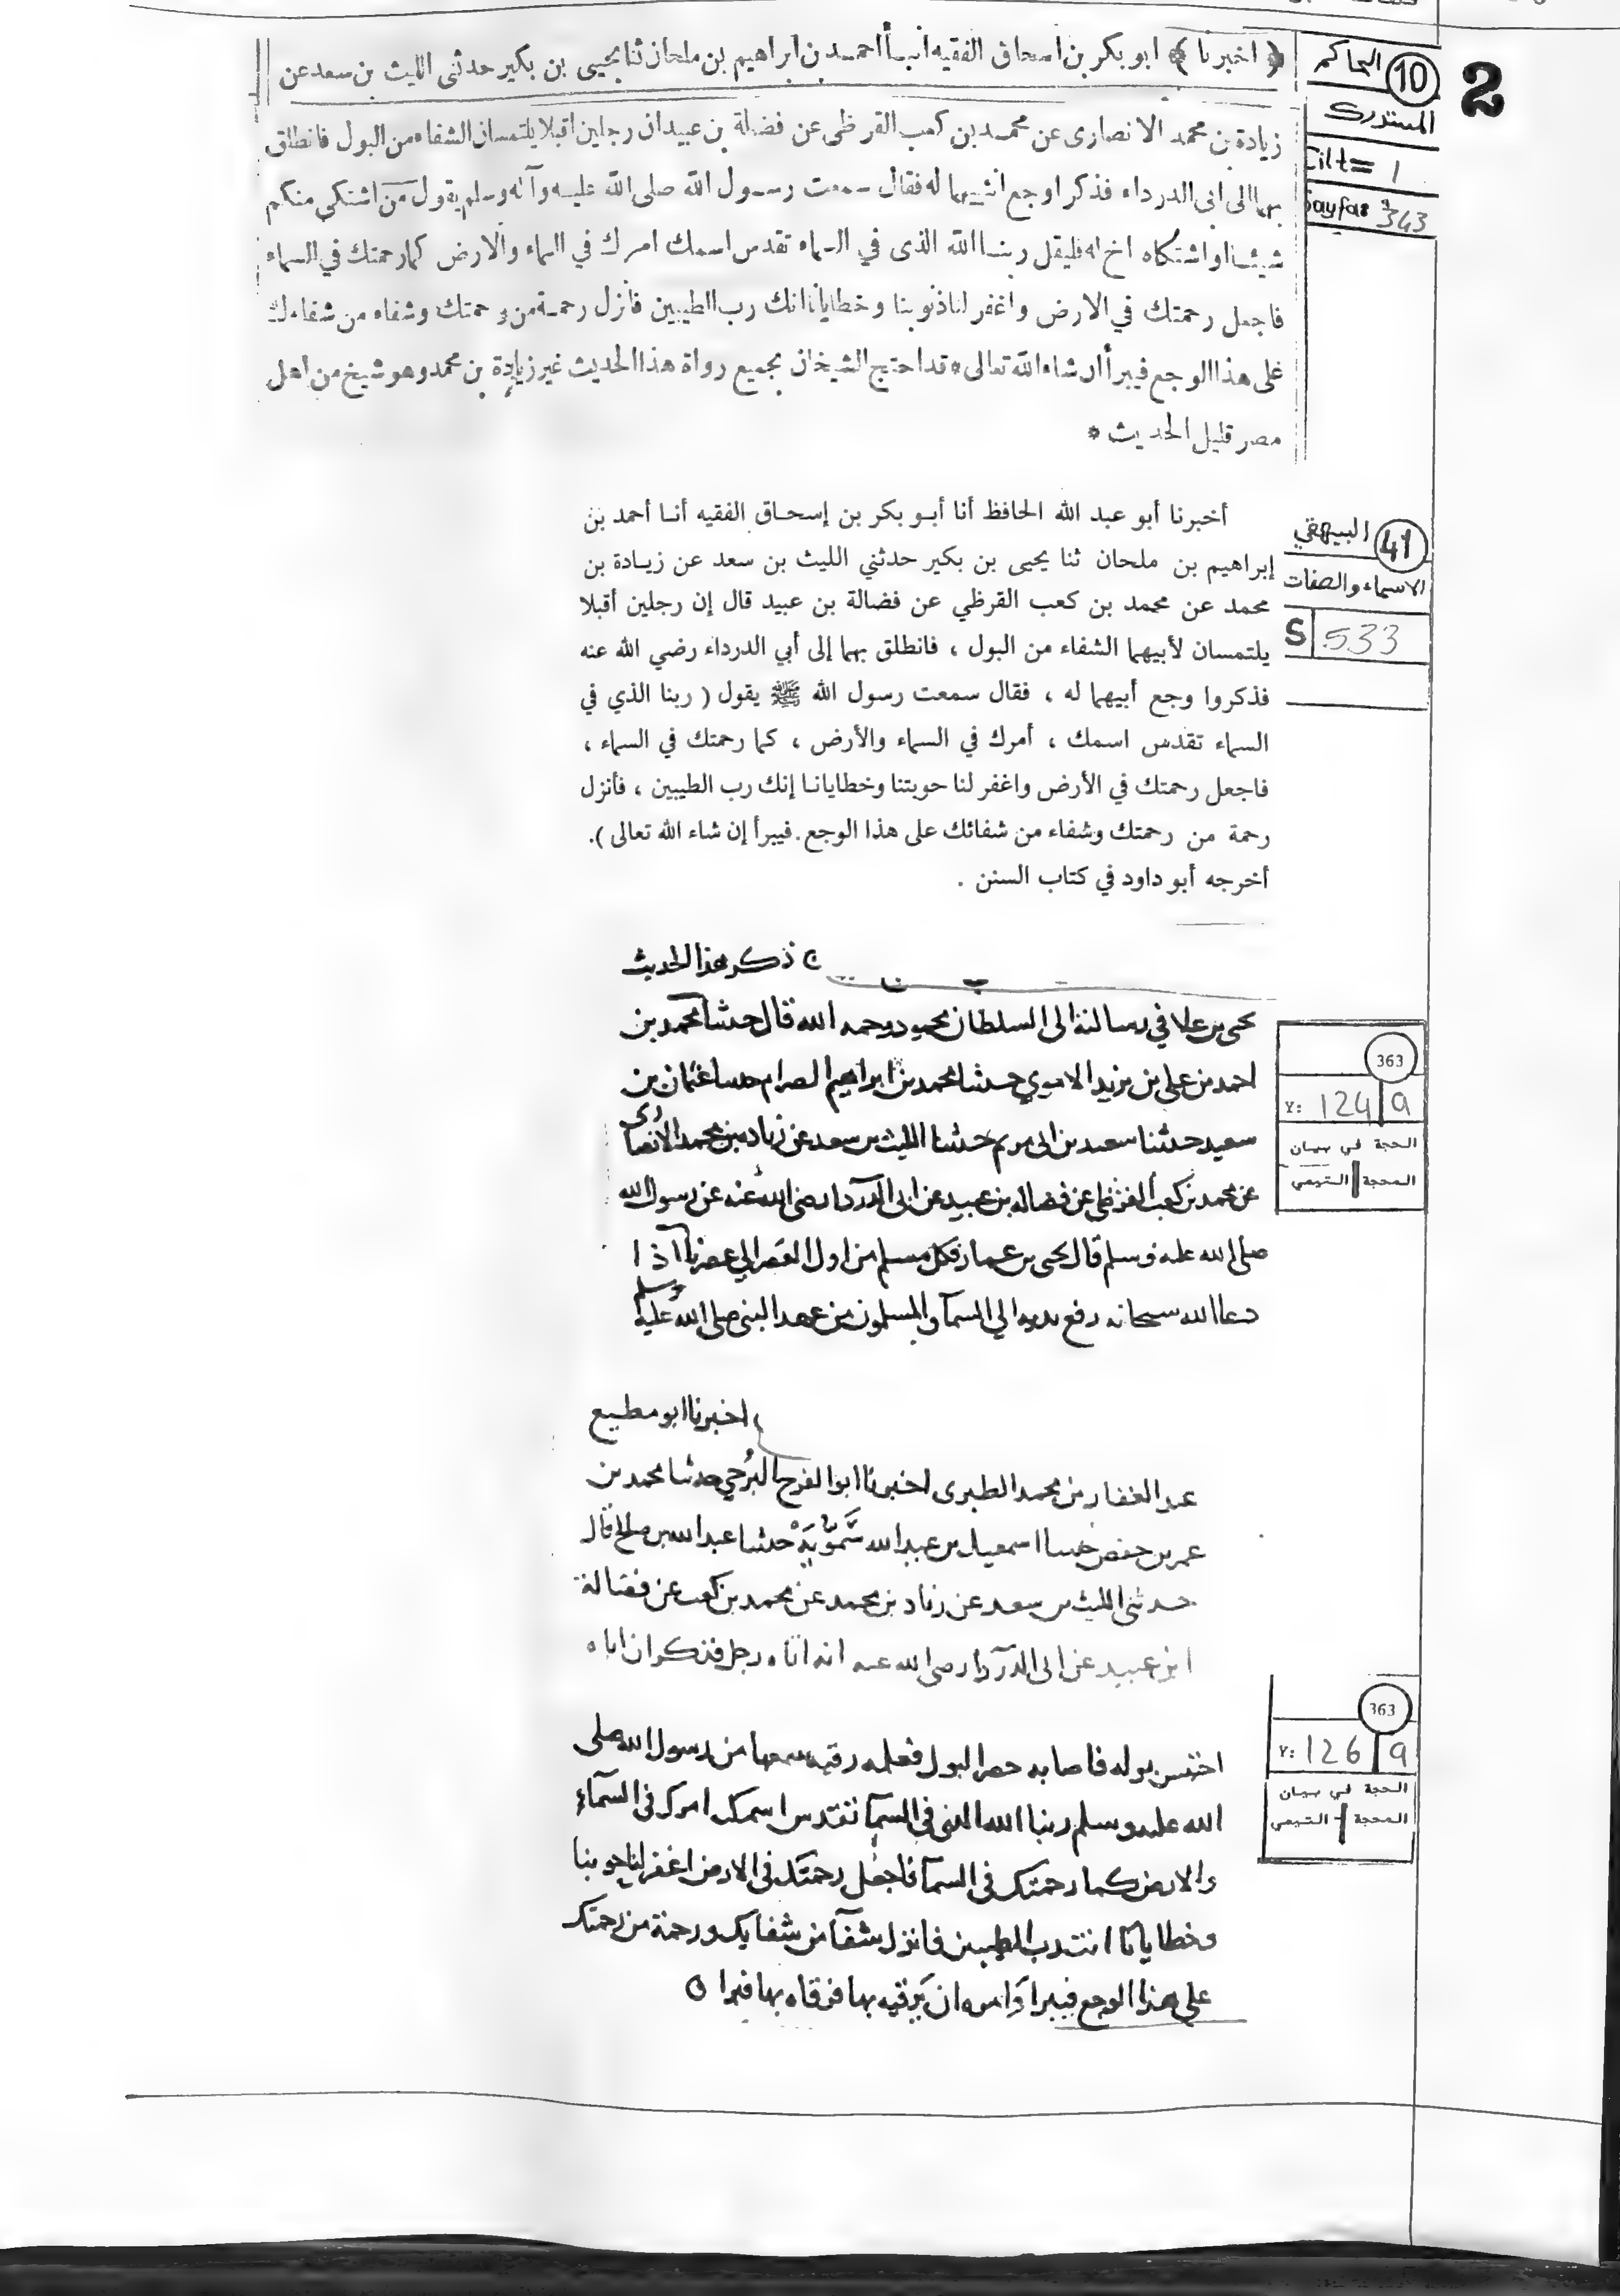 2
10 الحاكم
المستدرك
Cilt= 1
Sayfa: 343
﴿ اخبرنا ﴾ ابو بكر بن اسحاق الفقيه انبأ احمد بن ابراهيم بن ملحان ثنا يحيى بن بكير حدثنى الليث بن سعد عن
زيادة بن محمد الانصارى عن محمد بن كعب القرظى عن فضالة بن عبيد ان رجلين اقبلا يلتمسان الشفاء من البول فانطلق
بهما الى ابى الدرداء فذكرا وجع انثييهما له فقال سمعت رسول الله صلى الله عليه وآله وسلم يقول من اشتكى منكم
شيئا او اشتكاه اخ له فليقل ربنا الله الذى في السماء تقدس اسمك امرك في السماء والارض كما رحمتك في السماء
فاجعل رحمتك في الارض واغفر لنا ذنوبنا وخطايانا انك رب الطيبين فانزل رحمة من رحمتك وشفاء من شفاءك
على هذا الوجع فيبرأ ان شاء الله تعالى * قد احتج الشيخان بجميع رواة هذا الحديث غير زيادة بن محمد وهو شيخ من اهل
مصر قليل الحديث *
41 البيهقي
الاسماء والصفات
S 533
أخبرنا أبو عبد الله الحافظ أنا أبو بكر بن إسحاق الفقيه أنا أحمد بن
إبراهيم بن ملحان ثنا يحيى بن بكير حدثني الليث بن سعد عن زيادة بن
محمد عن محمد بن كعب القرظي عن فضالة بن عبيد قال إن رجلين أقبلا
يلتمسان لأبيهما الشفاء من البول ، فانطلق بهما إلى أبي الدرداء رضي الله عنه
فذكروا وجع أبيهما له ، فقال سمعت رسول الله ﷺ يقول ( ربنا الذي في
السماء تقدس اسمك ، أمرك في السماء والأرض ، كما رحمتك في السماء ،
فاجعل رحمتك في الأرض واغفر لنا حوبتنا وخطايانا إنك رب الطيبين ، فأنزل
رحمة من رحمتك وشفاء من شفائك على هذا الوجع . فيبرأ إن شاء الله تعالى ) .
أخرجه أبو داود في كتاب السنن .
ذكر هذا الحديث
يحيى بن في رسالته الى السلطان محمود رحمه الله قال حدثنا محمد بن
احمد بن علي بن مزيد حدثنا محمد بن ابراهيم الصرام حدثنا عثمان بن
سعيد حدثنا سعيد بن ابى مريم حدثنا الليث بن سعد عن زيادة بن محمد الانصارى
عن محمد بن كعب القرظي عن فضالة بن عبيد عن ابى الدرداء رضى الله عنه عن رسول الله
صلى الله عليه وسلم قال يحيى بن عمار فكل مسلم من اول العصر الى عصرنا اذا
دعا الله سبحانه رفع يديه الى السمآ والمسلمون من عهد النبى صلى الله عليه وسلم
363
Y: 124 a
الحجة في بيان
المحجة التيمي
اخبرنا ابو مطيع
عبد الغفار بن محمد الطبرى اخبرنا ابو الفرج البُرجي حدثنا محمد بن
عمر بن حفص حدثنا اسمعيل بن عبد الله سَمّوُيَهْ حدثنا عبد الله بن صالح قال
حدثنى الليث بن سعد عن زياد بن محمد عن محمد بن كعب عن فضالة
ابن عبيد عن ابى الدردآ رضى الله عنه انه اتاه رجل فذكر ان اباه
احتبس بوله فاصابه حصر البول فعلمه رقيه سمعها من رسول الله صلى
الله عليه وسلم ربنا الله الذى فى السمآ تقدس اسمك امرك فى السمآء
والارض كما رحمتك فى السمآ فاجعل رحمتك فى الارض اغفر لنا حوبنا
وخطايانا انت رب الطيبين فانزل شفآ من شفايك ورحمة من رحمتك
على هذا الوجع فيبرا وَامره ان يَرقيه بها فرقاه بها فبرا ٥
363
Y: 126 a
الحجة في بيان
المحجة التيمي